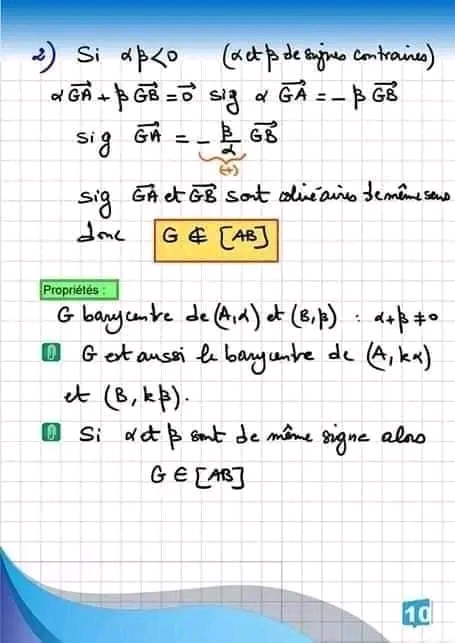 2) Si αβ<0 (α et β de signes contraires)
αG͞A + βGB = 0 sig αGA = -βGB
sig GA = - β/α GB
(+)
sig GA et GB sont colinéaires de même sens
donc G ∉ [AB]
Propriétés :
G barycentre de (A,α) et (B,β) : α+β≠0
G est aussi le barycentre de (A, kα)
et (B, kβ).
Si α et β sont de même signe alors
G ∈ [AB]
10